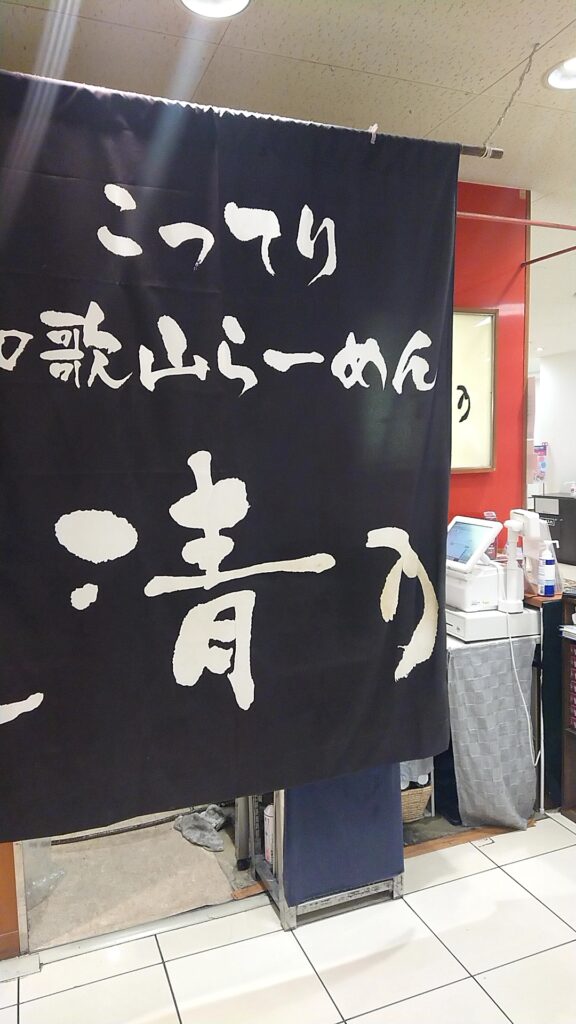 こってり
歌山らーめん
清乃